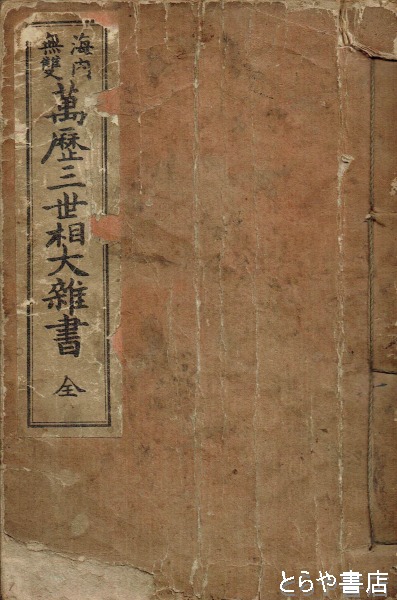 海内
無雙
萬歴三世相大雜書
全
とらや書店